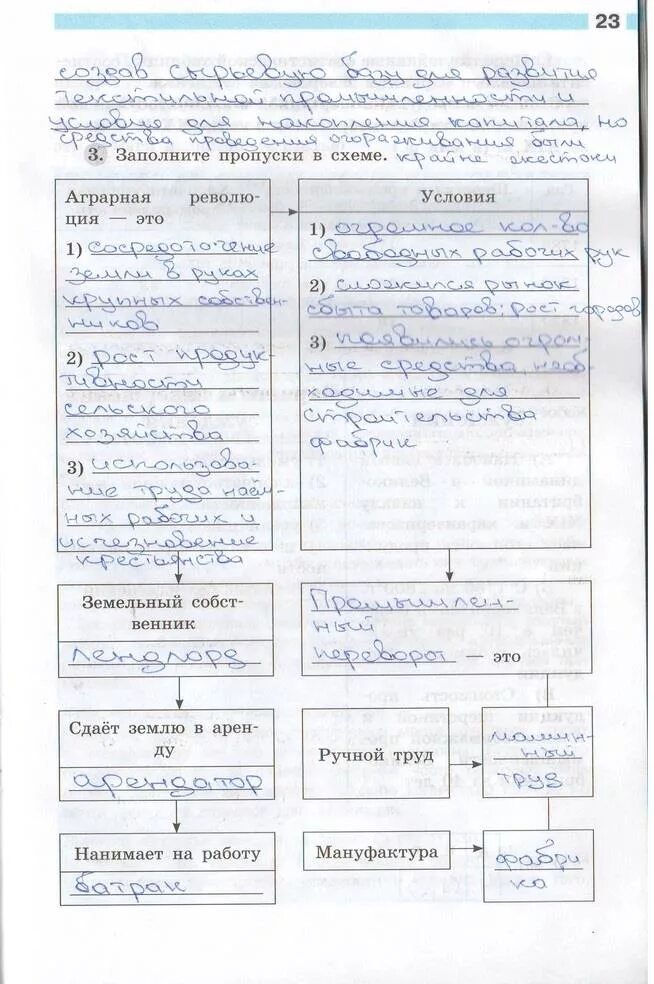 23
создав сырьевую базу для развития
текстильной промышленности и
условие для накопления капитала, но
средства проведения огораживания были
3. Заполните пропуски в схеме. крайне жестоки
Аграрная револю-
ция — это
1) сосредоточение
земли в руках
крупных собствен-
ников
2) рост продук-
тивности
сельского
хозяйства
3) использова-
ние труда наём-
ных рабочих и
исчезновение
крестьянства
Условия
1) огромное кол-во
свободных рабочих рук
2) сложился рынок
сбыта товаров; рост городов
3) появились огром-
ные средства, необ-
ходимые для
строительства
фабрик
Земельный собст-
венник
лендлорд
Промышлен-
ный
переворот — это
Сдаёт землю в арен-
ду
арендатор
Ручной труд
машин-
ный
труд
Нанимает на работу
батрак
Мануфактура
фабри
ка